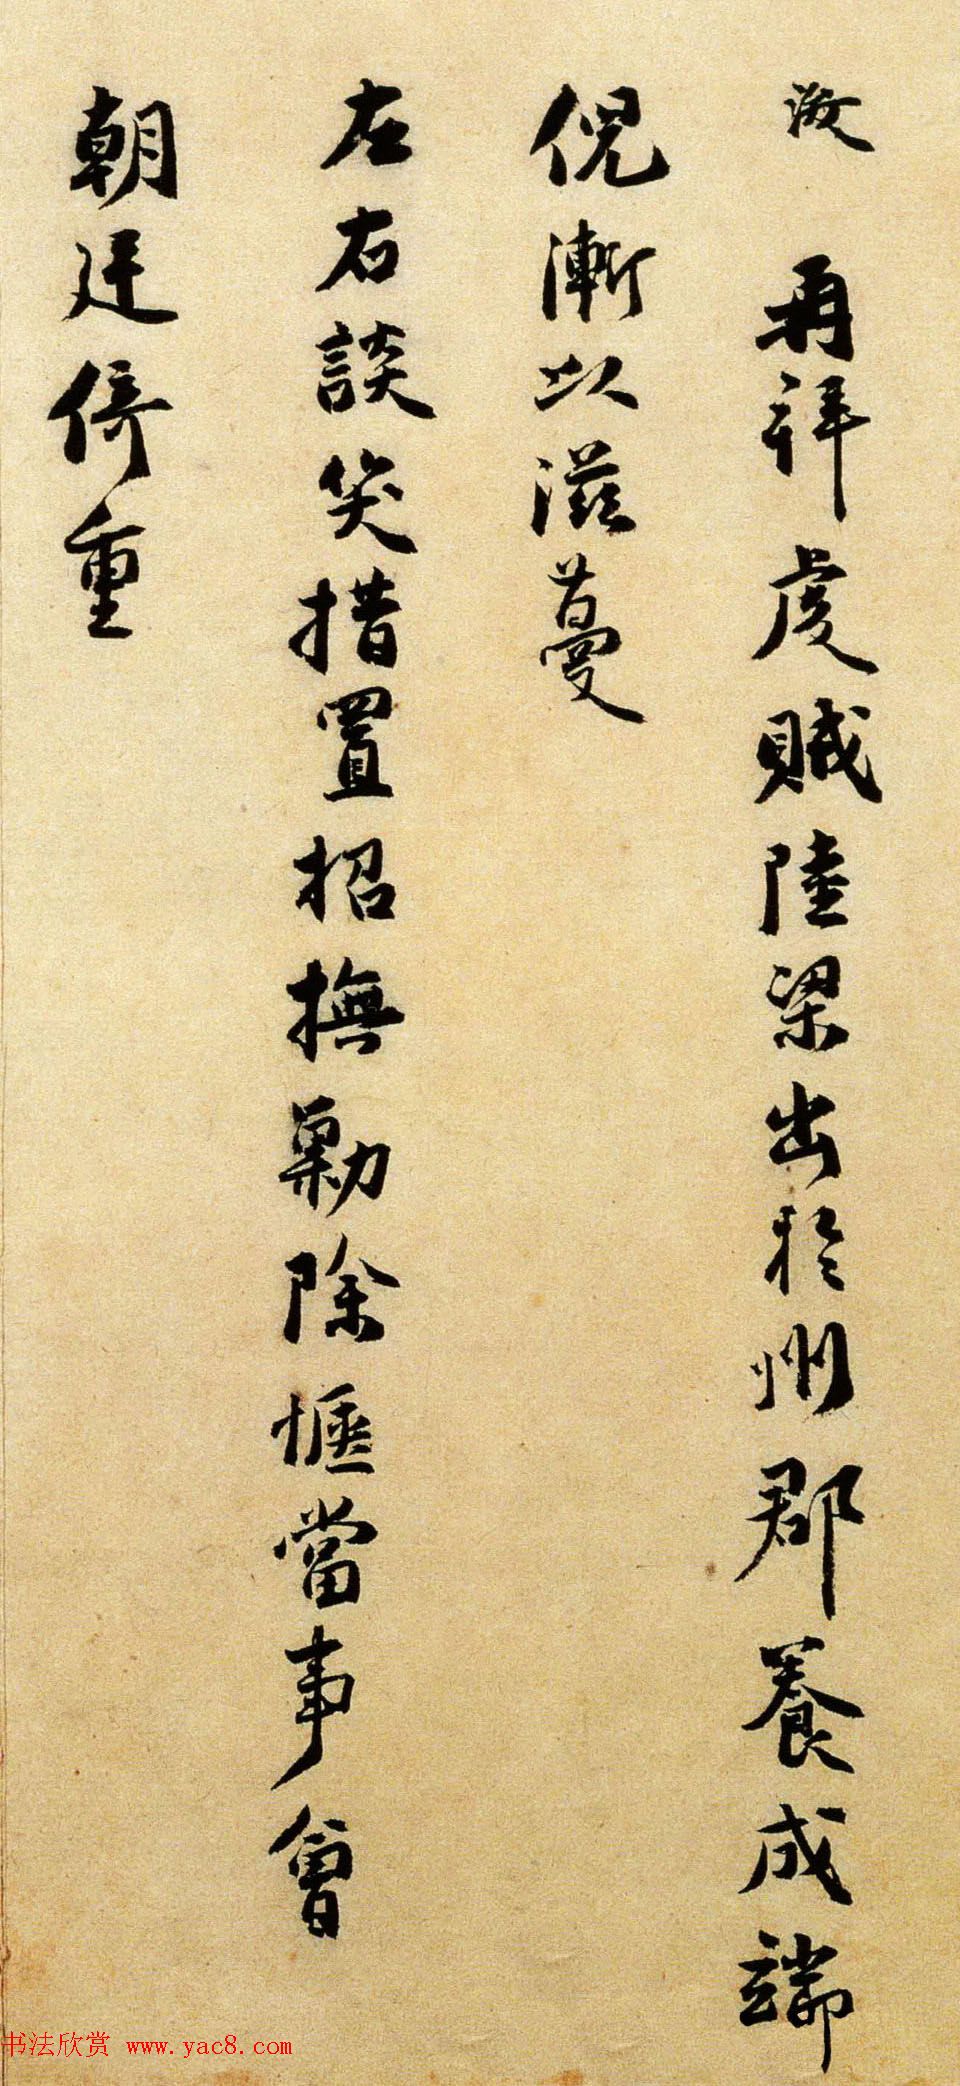 澂 再拜虔賊陸梁出於州郡養成端
倪漸以滋蔓
左右談笑措置招撫勦除愜當事會
朝廷倚重
书法欣赏 www.yac8.com